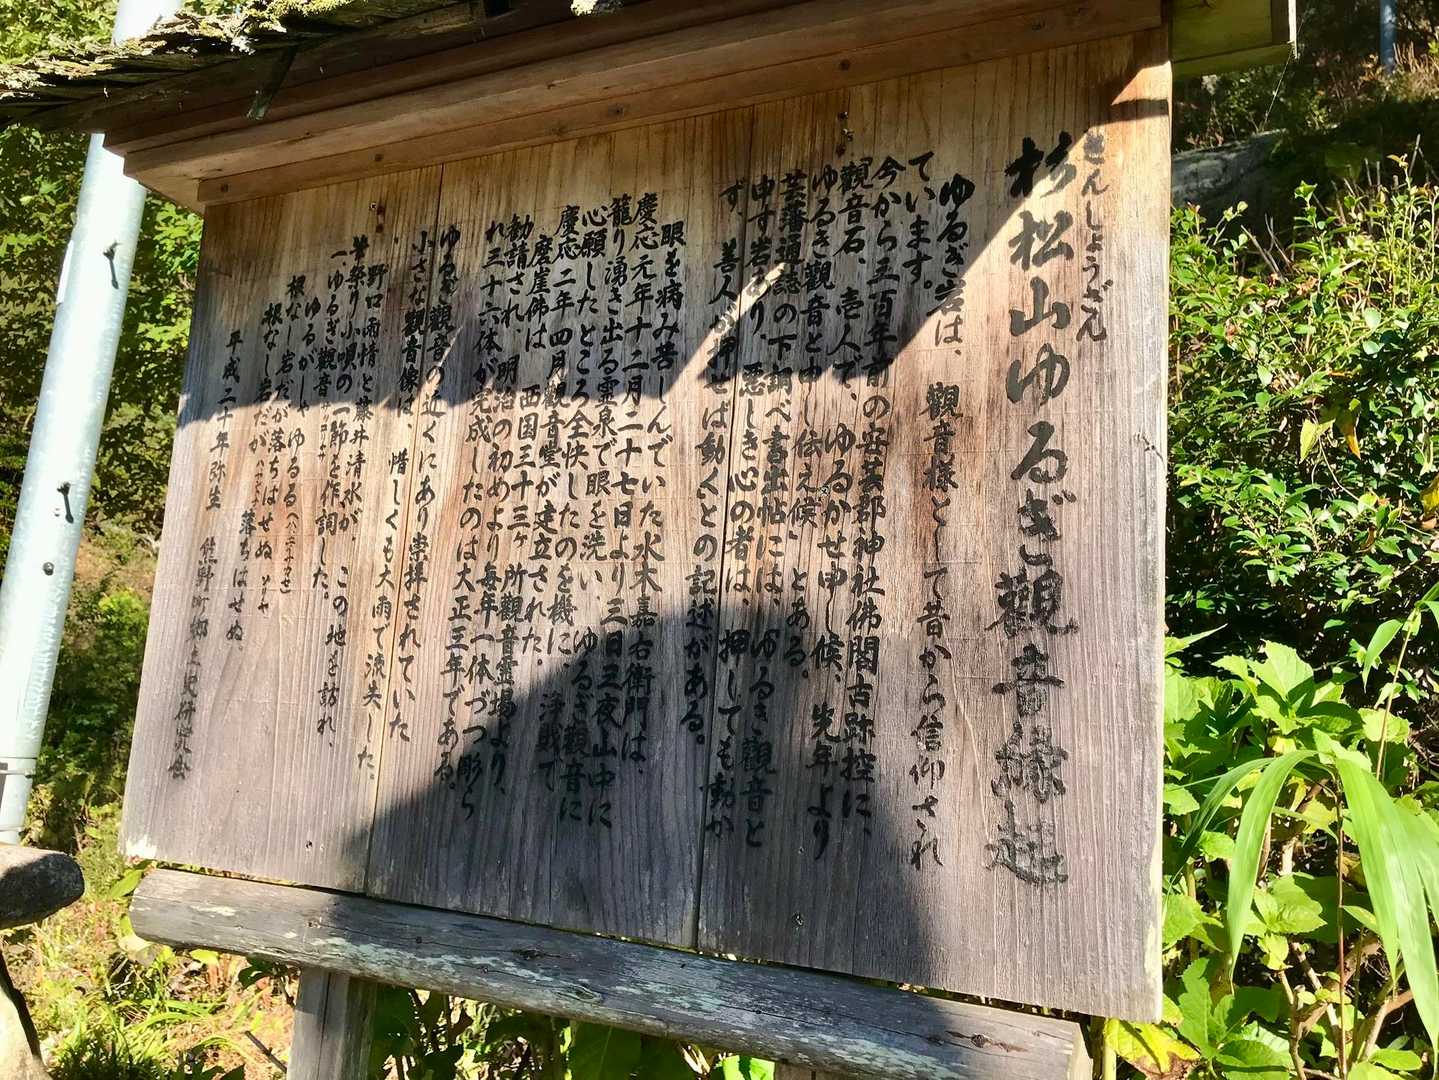 さんしょうざん
杉松山ゆるぎ観音縁起
ゆるぎ岩は、観音様として昔から信仰され
ています。
今から三百年前の安芸郡神社佛閣古跡控に、
観音石、壱人で、ゆるかせ申し候、先年より
ゆるき観音と申し伝え候」とある。
芸藩通誌の下調べ書出帖には、「ゆるき観音と
申す岩あり、悪しき心の者は、押しても動か
ず、善人が押せば動くとの記述がある。
眼を病み苦しんでいた水木嘉右衛門は、
慶応元年十二月二十七日より三日三夜山中に
籠り湧き出る霊泉で眼を洗い、ゆるぎ観音に
心願したところ全快したのを機に、浄財で
慶応二年四月観音堂が建立された。
磨崖佛は、西国三十三ヶ所観音霊場より、
勧請され、明治の初めより毎年一体づつ彫ら
れ三十六体が完成したのは大正三年である。
ゆるぎ観音の近くにあり崇拝されていた
小さな観音像は、惜しくも大雨で流失した。
野口雨情と藤井清水が、この地を訪れ、
筆祭り小唄の一節を作詞した。
「ゆるぎ観音
ゆるがしゃゆるる
根なし岩だが落ちはせぬ
根なし岩だが 落ちはせぬ。
平成二十年弥生 熊野町郷土史研究会